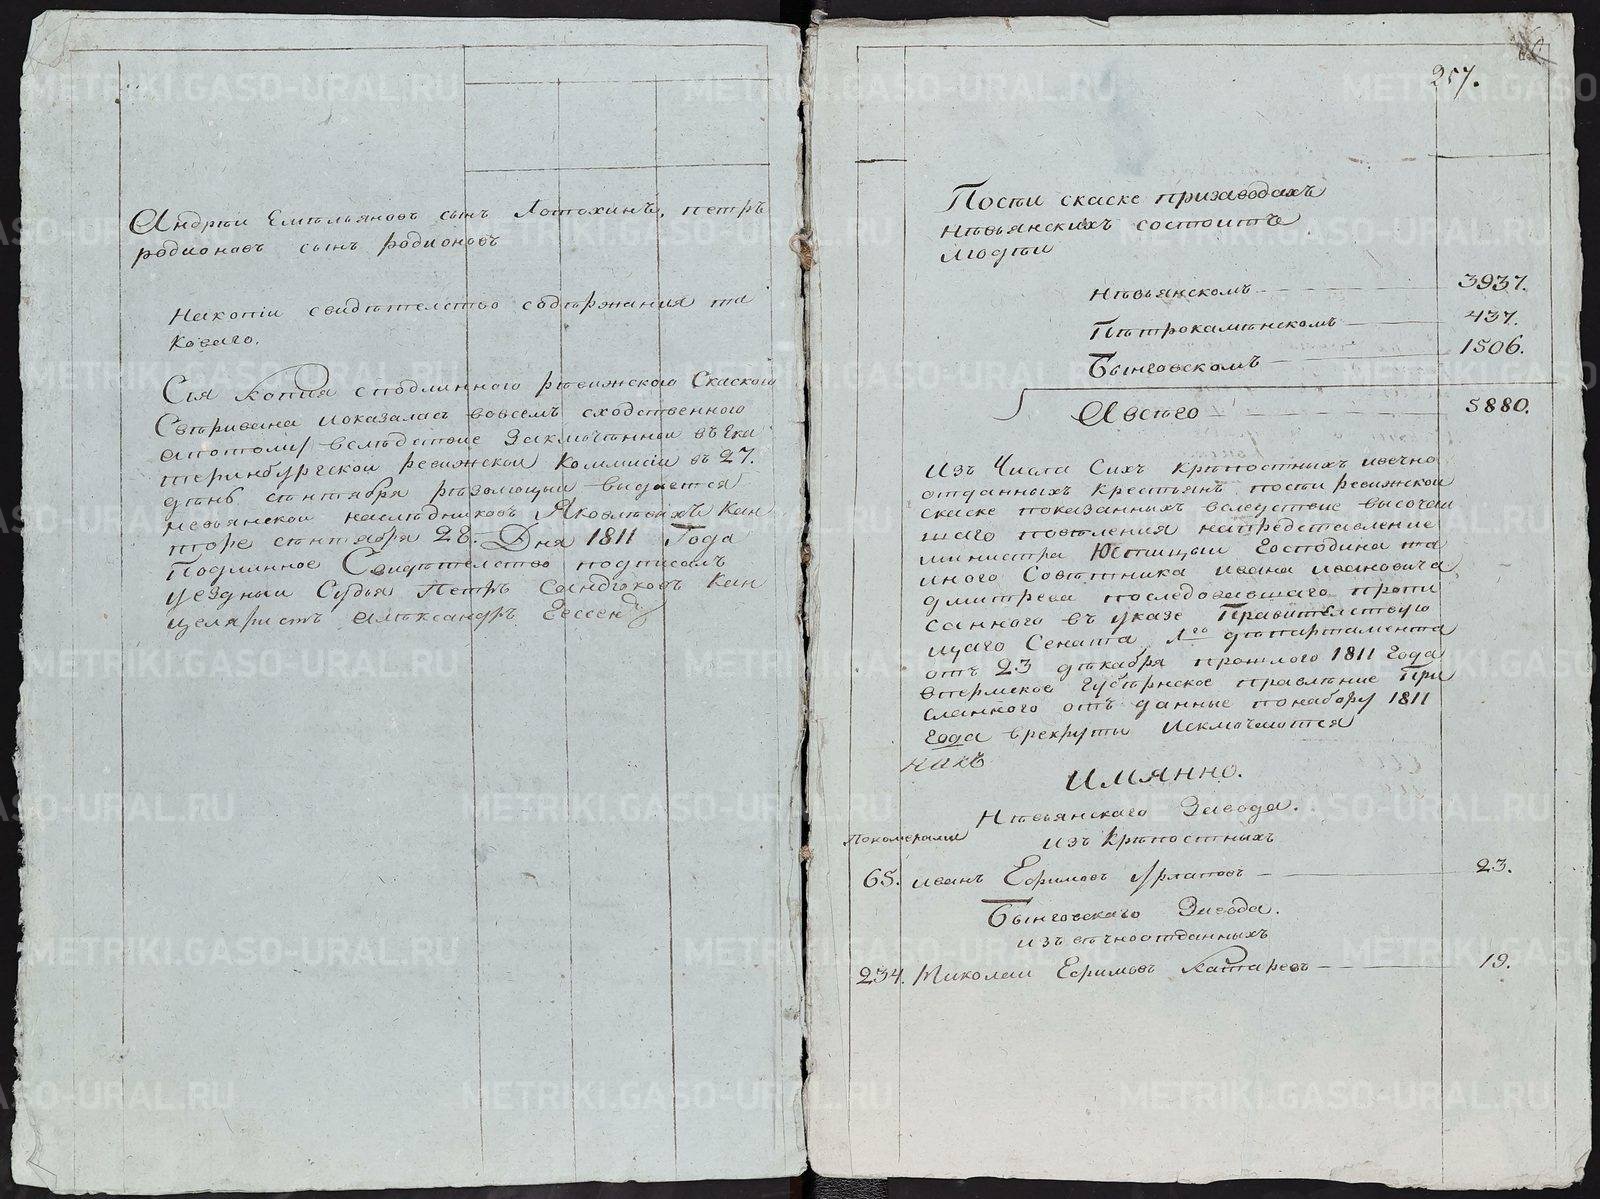 Андрѣи Емѣльяновъ сынъ Лотохинъ, петръ
родионовъ сынъ родионовъ
На копіи свидѣтелство содѣржания та
коваго.
Сія копия сподлинного рѣвижского Скаского
Свѣривана иоказалась вовсемъ сходственного
апотому вслѣдствие Заключѣннои въ Ека
теринбургскои ревижскои Коммисіи въ 27.
дѣнь сѣнтября рѣзолюции выдается
невьянскои наслѣдниковъ Яковлѣвыхъ Кан
торе сѣнтября 28. Дня 1811 Года
Подлинное Свидѣтелство подписалъ
уездныи Судья Петръ Кан
целяристъ алѣксандръ Ессен
257.
Посѣи скаске призаводахъ
нѣвьянскихъ состоитъ
людѣи
нѣвьянскомъ 3937.
Пѣтрокамѣнскомъ 437.
Бынговскомъ 1506.
Авсѣго 5880.
Изъ Числа Сихъ крѣпостныхъ ивечно
отданныхъ крестьянъ посѣи ревижскои
скаске показанныхъ вследствие высочаи
шаго повѣления напредставление
министра Юстиции Господина та
иного Совѣтника ивана ивановича
дмитрева последовавшаго пропи
санного въ указе Правителствую
щаго Сената 1го дѣпартамента
отъ 23 дѣкабря прошлого 1811 Года
впермское Губѣрнское правлѣние При
сланного отъ данные понабору 1811
Года врекруты Исключаются
какъ
имянно.
Нѣвьянскаго Завода.
Пономерамъ
изъ крѣпостныхъ
65. иванъ Ефимовъ Арлаповъ 23.
Бынговскаго Завода.
изъ вѣчноотданныхъ
234. Николаи Ефимовъ Катаревъ 19.
METRIKI.GASO-URAL.RU